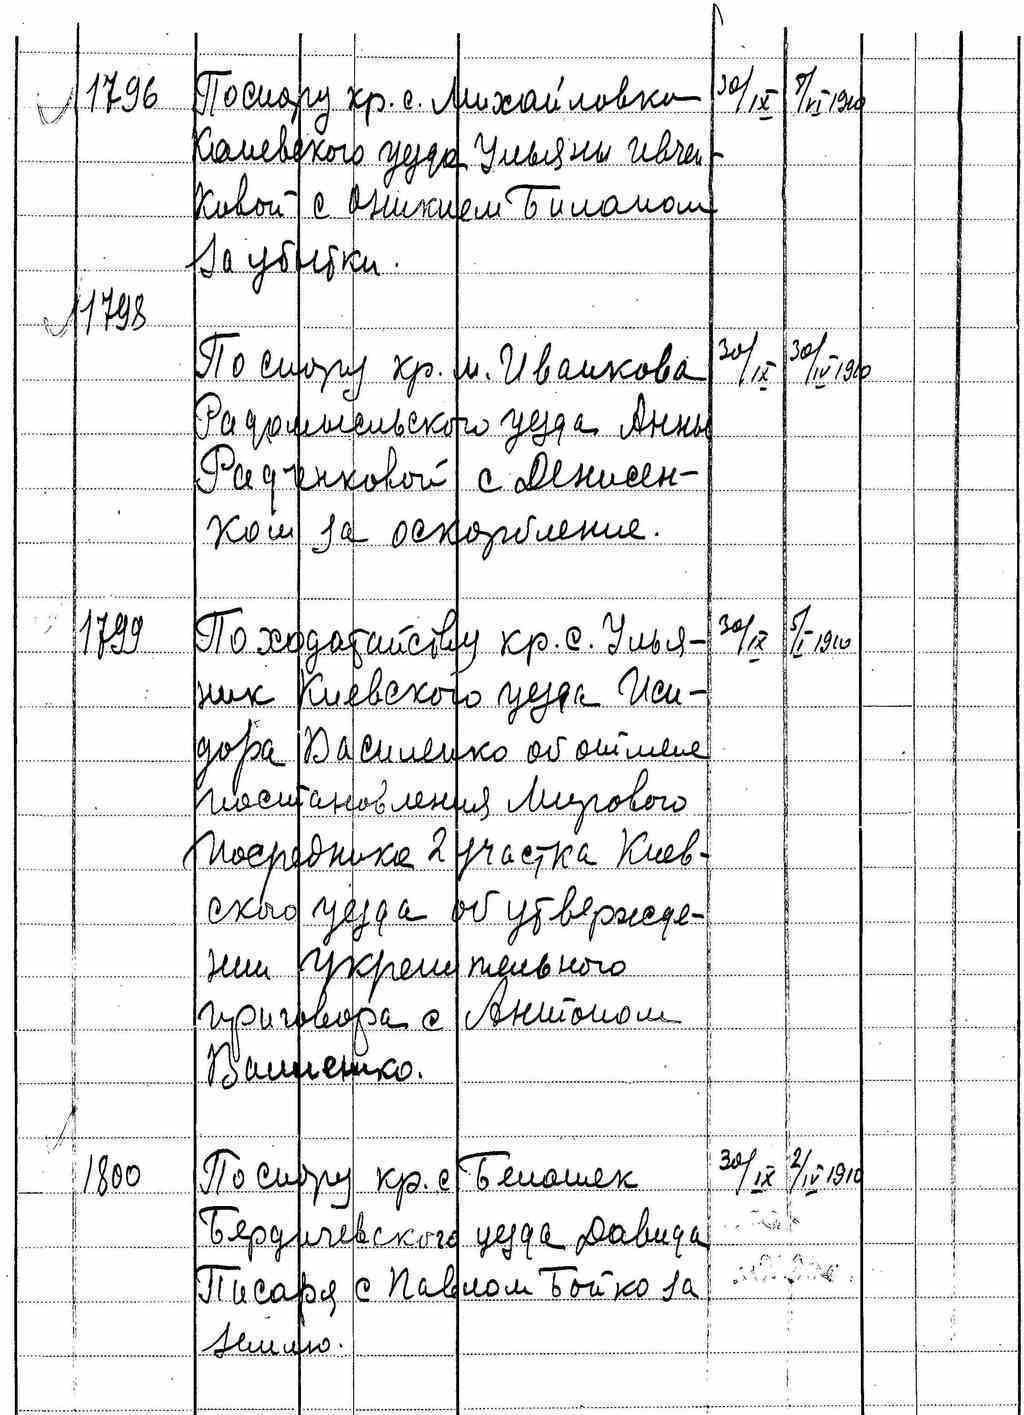 1796 По спору кр. с. Михайловки 30/IX 5/VI 1910
Каневского уезда Ульяны Ивчен-
ковой с Оникием Биланом
за убытки.
1798
По спору кр. м. Иванкова 30/IX 30/IV 1910
Радомысльского уезда Анны
Радченковой с Денисен-
ком за оскорбление.
1799 По ходатайству кр. с. Улья- 30/IX 5/I 1910
ник Киевского уезда Иси-
дора Василенко об отмене
постановления Мирового
Посредника 2 участка Киев-
ского уезда об утвержде-
нии укрепительного
приговора с Антоном
1800 По спору кр. с Белашек 30/IX 2/IV 1910
Бердичевского уезда Давида
Писаря с Павлом Бойко за
землю.